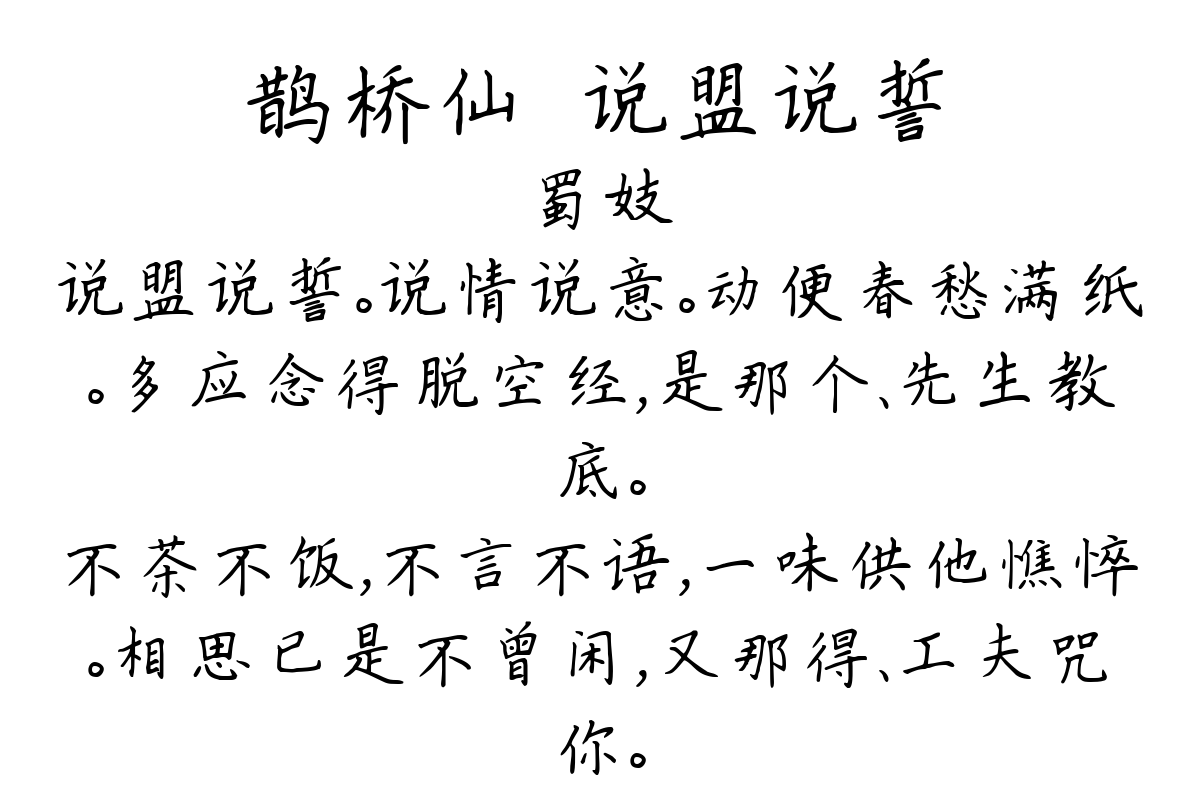 鹊桥仙 说盟说誓
蜀妓
说盟说誓。说情说意。动便春愁满纸
。多应念得脱空经,是那个、先生教
底。
不茶不饭,不言不语,一味供他憔悴
。相思已是不曾闲,又那得、工夫咒
你。